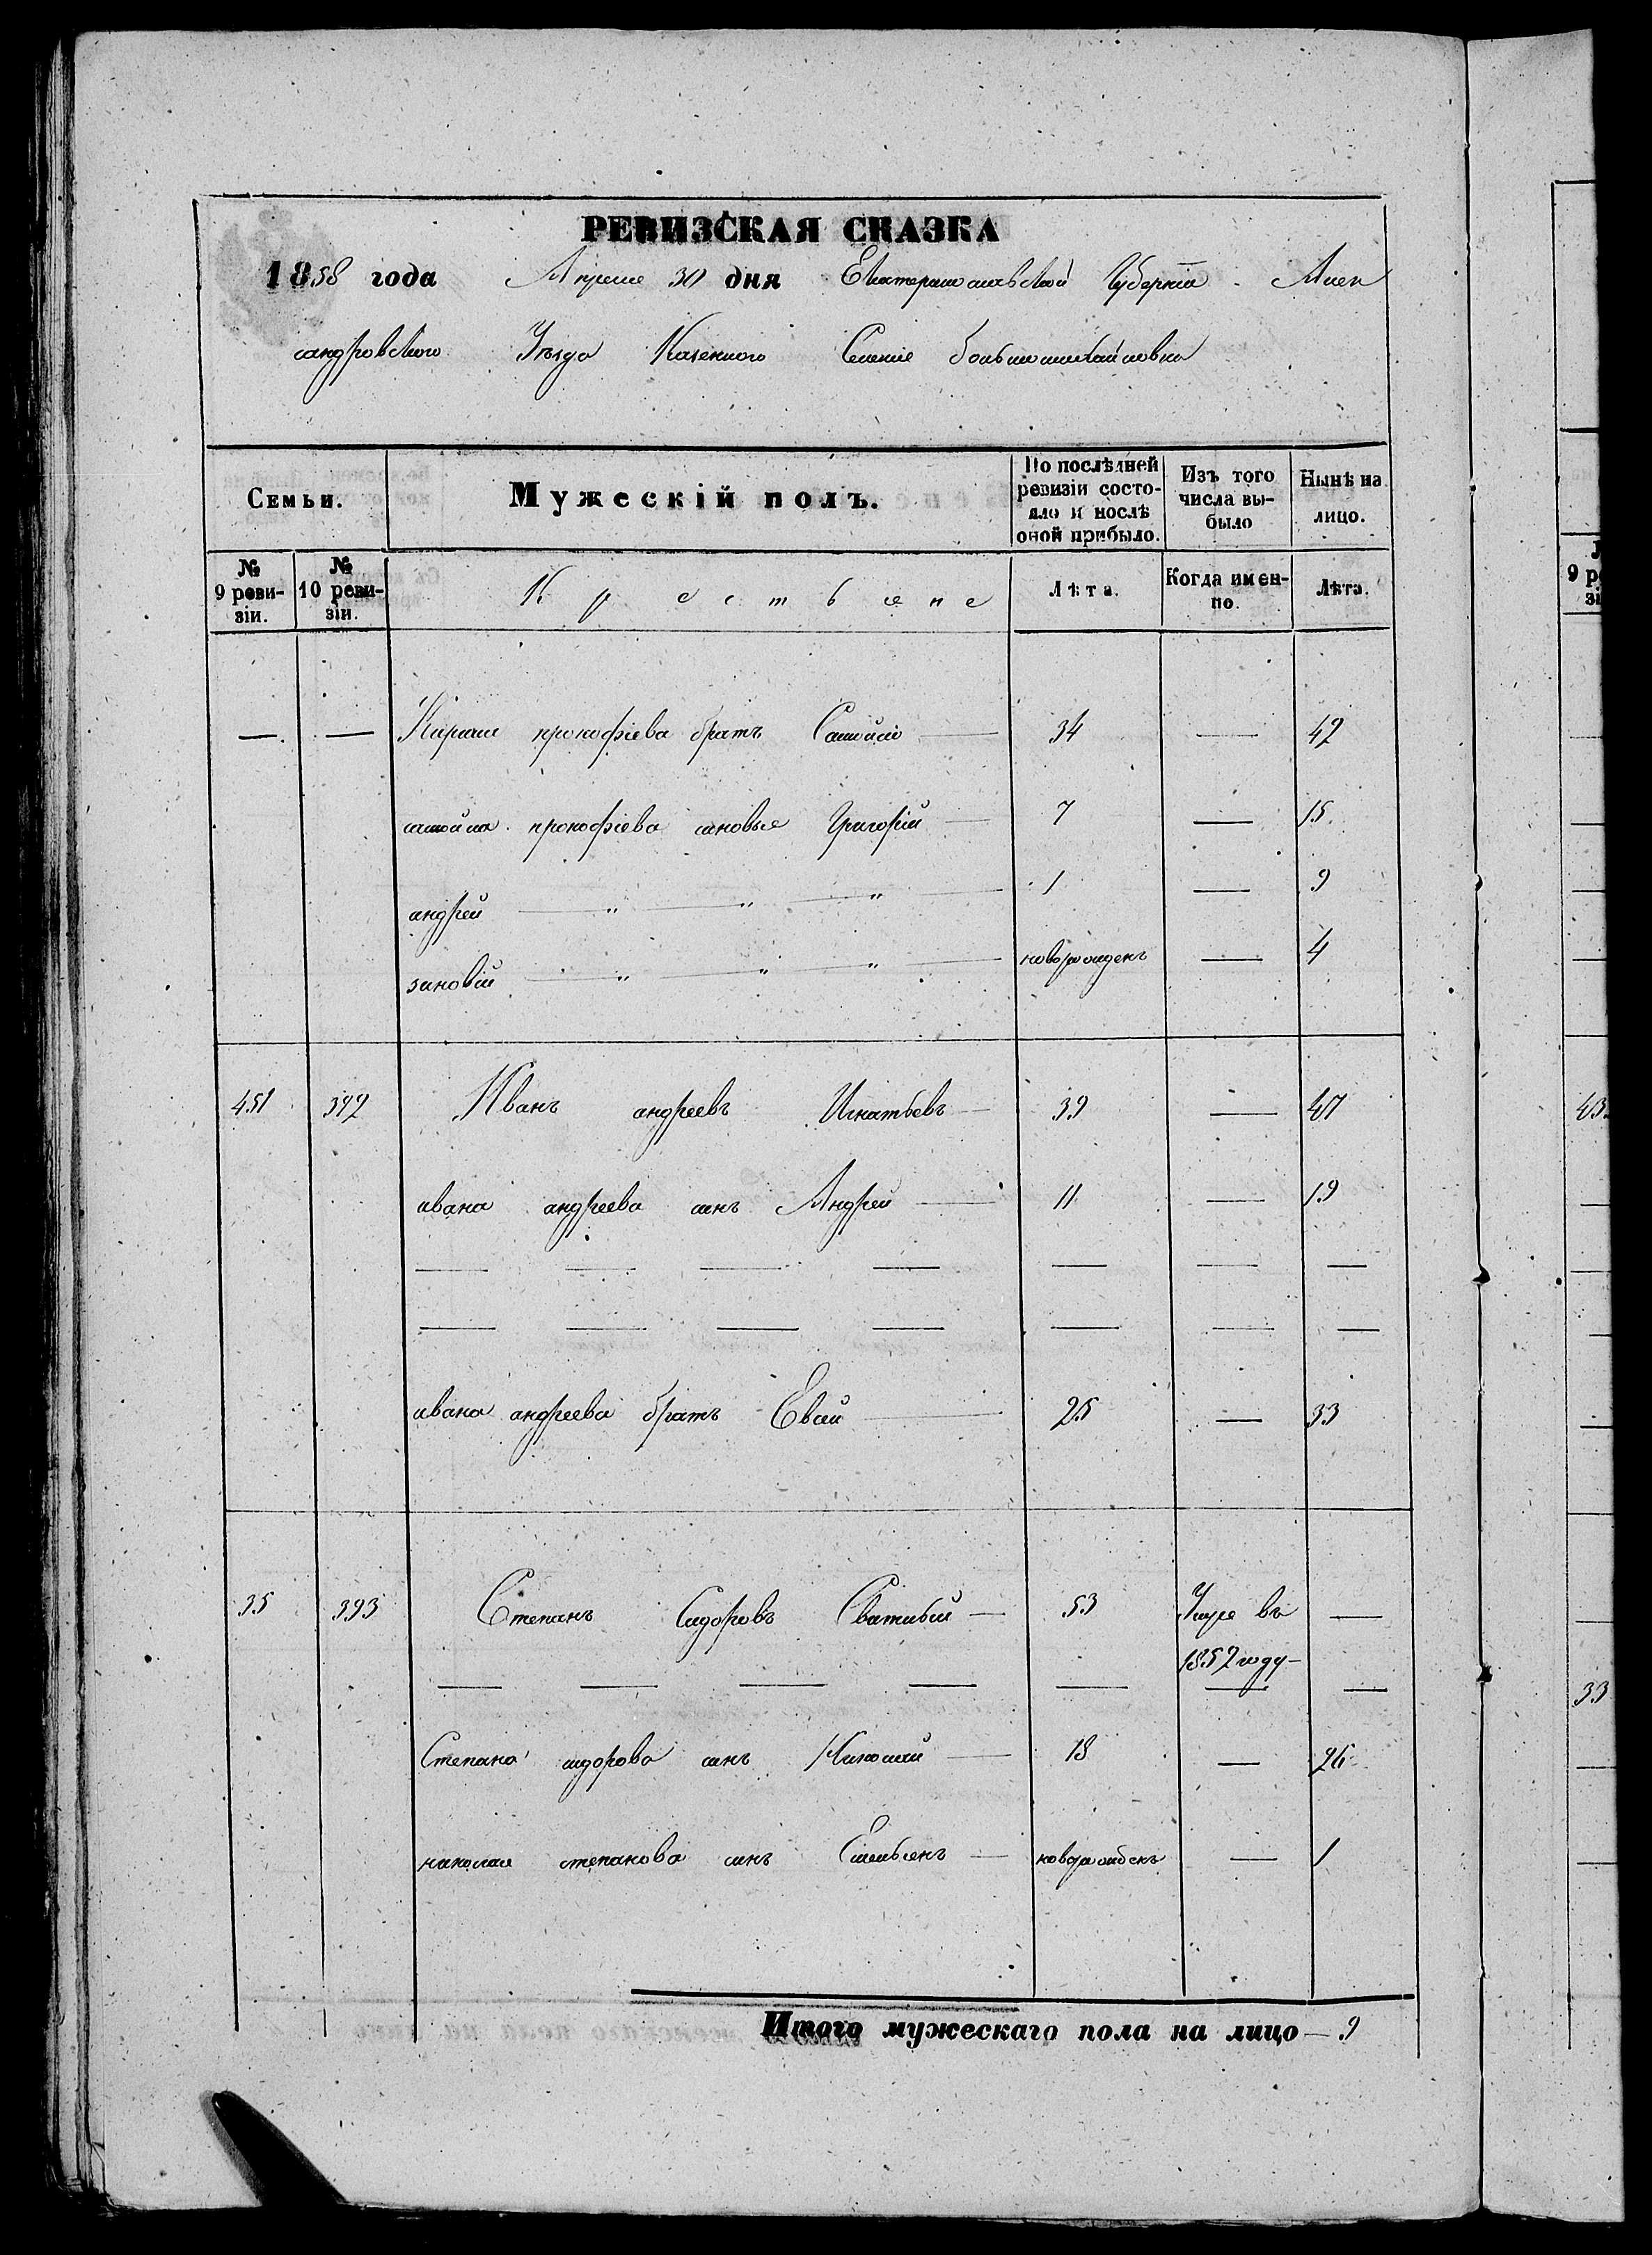 РЕВИЗСКАЯ СКАЗКА
1858 года Апреля 30 дня Екатеринославской Губернии Алек
сандровского Уѣзда Казенного Селенiе Большомихайловки
Семьи. Мужескiй полъ. По послѣдней ревизiи состо- яло и послѣ оной прибыло. Изъ того числа вы- было Нынѣ на лицо.
№ 9 реви- зiи. № 10 реви- зiи. Крестьяне Лѣта. Когда имен- но. Лѣта.
— — Кирила прокофiева братъ Самойло — 34 — 42
самойла прокофiева сыновья Григорiй — 7 — 15
андрей — " — " — " — 1 — 9
зиновiй — " — " — " — новорожденъ — 4
451 392 Иванъ андреевъ Игнатьевъ — 39 — 47
ивана андреева сынъ Андрей — 11 — 19
— — — — — — —
— — — — — — —
ивана андреева братъ Евсей — 25 — 33
35 393 Степанъ Сидоровъ — 53 Умре въ —
1852 году —
— — — — — — —
Степана сидорова сынъ Николай — 18 — 26
николая степанова сынъ Емельенъ — новорожденъ — 1
Итого мужескаго пола на лицо — 9
9 ре
зi
43
33